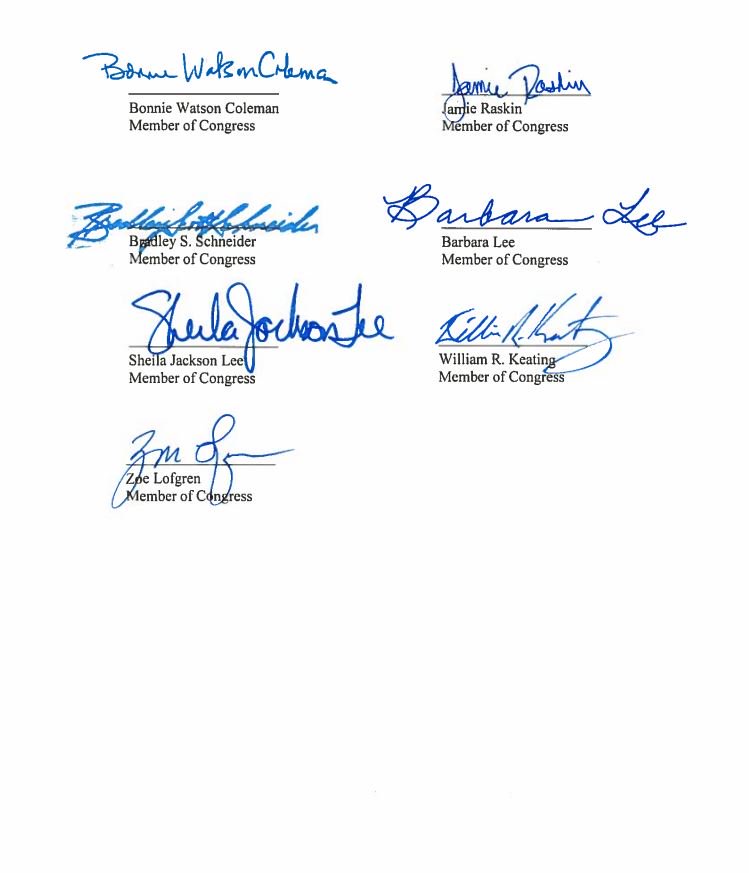 Bonnie Watson Coleman
Bonnie Watson Coleman
Member of Congress
Jamie Raskin
Jamie Raskin
Member of Congress
Bradley Scott Schneider
Bradley S. Schneider
Member of Congress
Barbara Lee
Barbara Lee
Member of Congress
Sheila Jackson Lee
Sheila Jackson Lee
Member of Congress
William R. Keating
William R. Keating
Member of Congress
Zoe Lofgren
Member of Congress